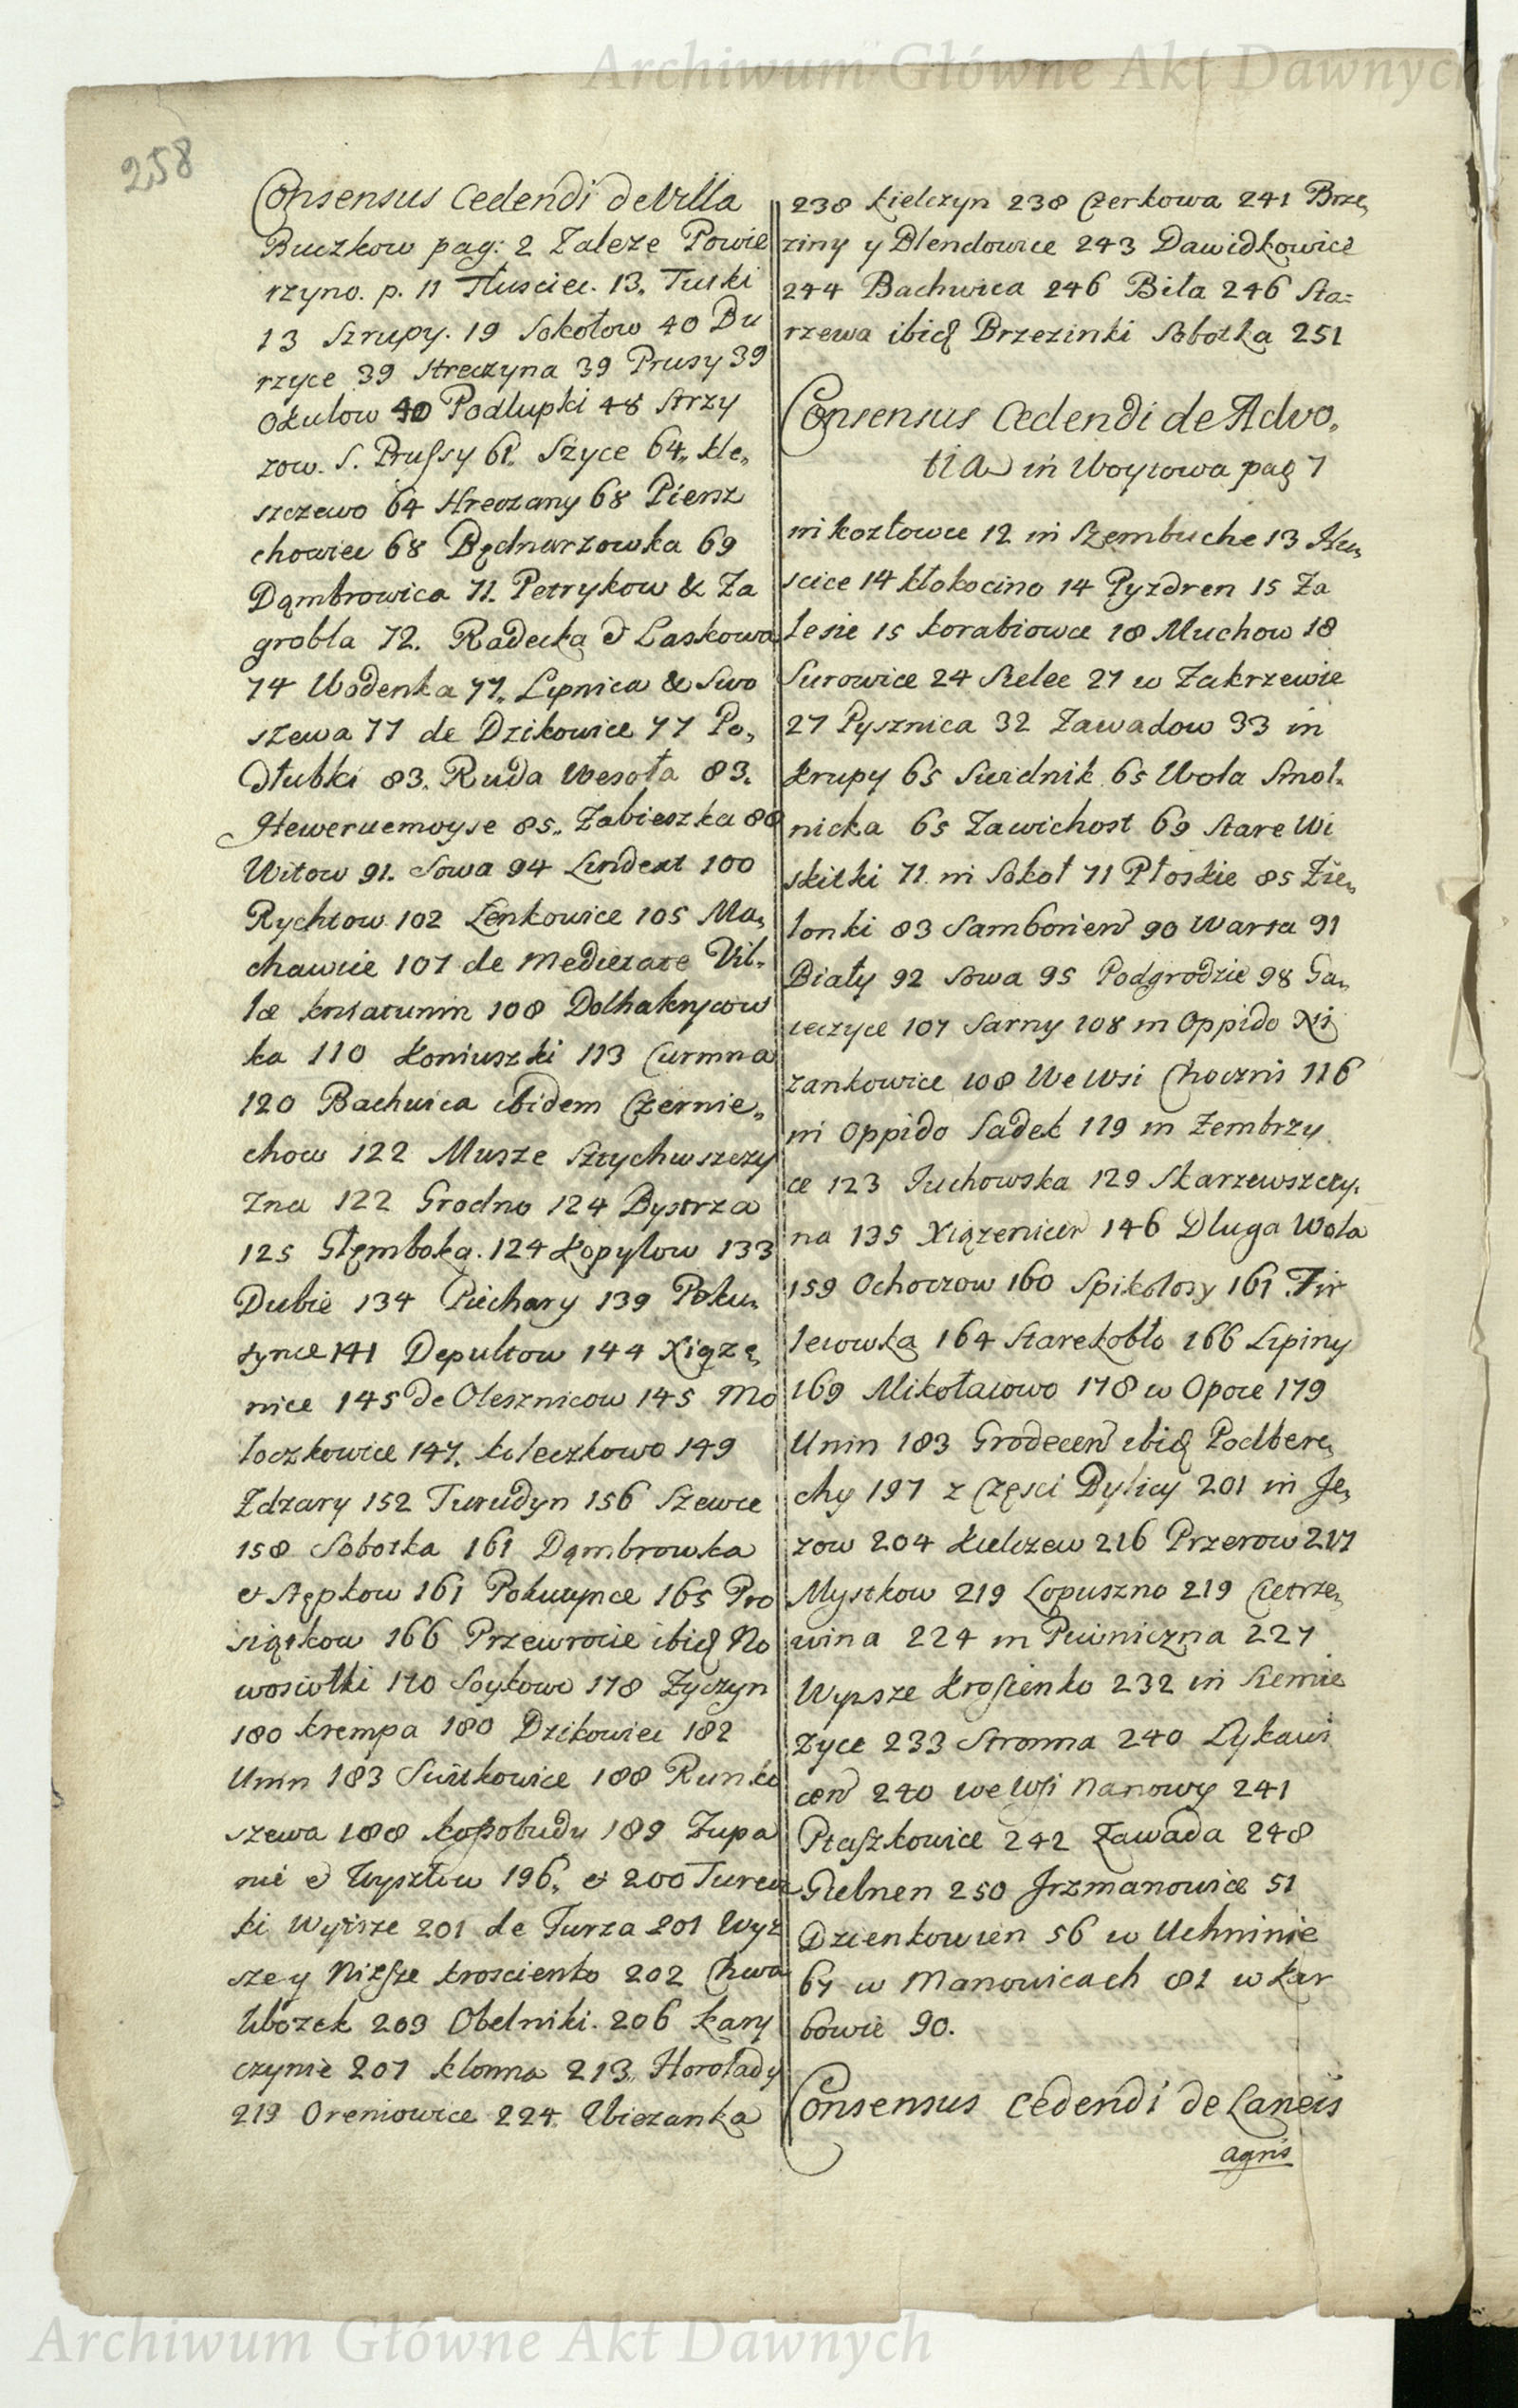 Archiwum Główne Akt Dawnych
258
Consensus Cedendi de Villa
Buczkow pag: 2 Zaleze Powie
rzyno. p. 11 Tłusciec. 13. Turki
13 Szrupy. 19 Sokołow 40 Bu
rzyce 39 Streczyna 39 Prusy 39
Okulow 40 Podlupki 48 Strzy
zow. S. Prussy 61. Szyce 64. Kle„
szczewo 64 Hreczany 68 Piensz
chowiec 68 Będnarzowka 69
Dąmbrowica 71. Petrykow & Za
grobla 72. Radecka & Laskowa
74 Wodenka 77. Lipnica & Swo
szewa 77 de Dzikowice 77 Po„
dłubki 83. Ruda Wesoła 83.
Hewernemoyse 85. Zabieszka 88
Witow 91. Sowa 94 Lendext 100
Rychtow 102 Lenkowice 105 Ma„
chawcie 107 de Medietate Vil„
læ Kniatunin 108 Dolhaknycow
ka 110 Koniuszki 113 Curmna
120 Bachwica ibidem Czernie„
chow 122 Musze Sztychwszczy
zna 122 Grodno 124 Bystrza
125 Głęmboka. 124 Kopylow 133
Dubie 134 Piechary 139 Poku„
tynce 141 Depultow 144 Xiązę„
nice 145 de Olesznicow 145 Mo
łoczkowice 147. Kileczkowo 149
Zdzary 152 Turudyn 156 Szewce
158 Sobotka 161 Dąmbrowka
et Stępkow 161 Pokutynce 165 Pro
siątkow 166 Przewrocie ibid No
wosiołki 170 Soykowo 178 Zyczyn
180 Krempa 180 Dzikowiec 182
Unin 183 Switkowice 188 Runko
szewa 188 Kopobudy 189 Zupa
nie et Wysztow 196. et 200 Turec
ki Wyższe 201 de Turza 201 Wyż
sze y Niższe Kroscienko 202 Chwa
Ubozek 203 Obelniki. 206 Kary
czynie 207 Klonna 213. Horolady
219 Oreniowice 224. Ubiezanka
238 Kielczyn 238 Czerkowa 241 Brze„
ziny y Blendowice 243 Dawidkowice
244 Bachwica 246 Biła 246 Sta=
rzewa ibid Brzezinki Sobotka 251
Consensus Cedendi de Advo„
tia in Woytowa pag 7
in Kozłowce 12 in Szembuche 13 Ku„
scice 14 Kłokocino 14 Pyzdren 15 Za
lesie 15 Korabiowce 18 Muchow 18
Surowice 24 Sielec 27 w Zakrzewie
27 Pysznica 32 Zawadow 33 in
Krupy 65 Swidnik 65 Wola Smol„
nicka 65 Zawichost 69 Stare Wi
skitki 71 in Sokoł 71 Płoskie 85 Zie„
lonki 83 Samborien 90 Warta 91
Biały 92 Sowa 95 Podgrodzie 98 Ga„
leczyce 107 Sarny 108 in Oppido Ni
zankowice 108 We Wsi Choczni 116
in Oppido Sadek 119 in Zembrzy
ce 123 Juchowska 129 Skarzewszczy„
na 135 Xiązenicen 146 Dluga Wola
159 Ochoczow 160 Spikolosy 161 Fir
lewowka 164 Starekobło 166 Lipiny
169 Mikołaiowo 178 w Opoce 179
Unin 183 Grodecen ibid Podbere„
chy 197 z Częsci Dylicy 201 in Je„
zow 204 Kielczew 216 Przerow 217
Mystkow 219 Lopuszno 219 Cietrze„
wina 224 in Piwniczna 227
Wyzsze Krosienko 232 in Siemie
zyce 233 Stronna 240 Lykawi
cen 240 we Wsi Nanowy 241
Ptaszkowice 242 Zawada 248
Gielnen 250 Jrzmanowice 51
Dzienkowien 56 w Uchninie
67 w Manowicach 81 w Kar
bowie 90.
Consensus Cedendi de Laneis
agris
Archiwum Główne Akt Dawnych